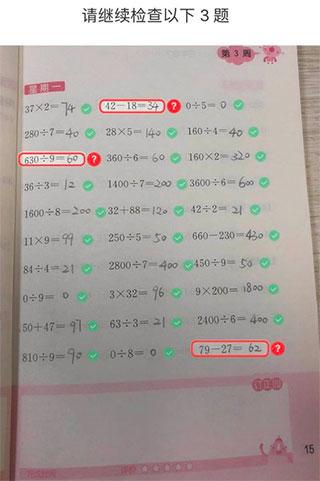 请继续检查以下 3 题
第 3 周
星期一
37×2=74 42-18=34 ? 0÷5=0
280÷7=40 28×5=140 160÷4=40
630÷9=60 ? 360÷6=60 160×2=320
36÷3=12 1400÷7=200 3600÷6=600
1600÷8=200 32+88=120 42÷2=21
11×9=99 250÷5=50 660-230=430
84÷4=21 2800÷7=400 450÷9=50
0÷9=0 3×32=96 9×200=1800
50+47=97 63÷3=21 2400÷6=400
810÷9=90 0÷8=0 79-27=62 ?
订正园
15